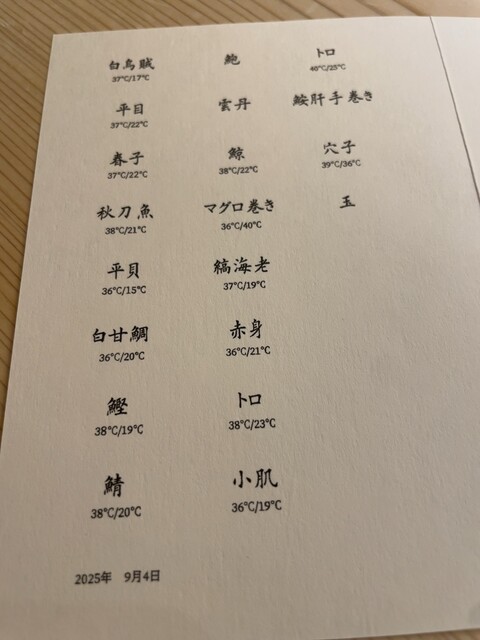 白烏賊
37℃/17℃
平目
37℃/22℃
春子
37℃/22℃
秋刀魚
38℃/21℃
平貝
36℃/15℃
白甘鯛
36℃/20℃
鰹
38℃/19℃
鯖
38℃/20℃
鮑
雲丹
鯨
38℃/22℃
マグロ巻き
36℃/40℃
縞海老
37℃/19℃
赤身
36℃/21℃
トロ
38℃/23℃
小肌
36℃/19℃
トロ
40℃/25℃
鮟肝手巻き
穴子
39℃/36℃
玉
2025年 9月4日